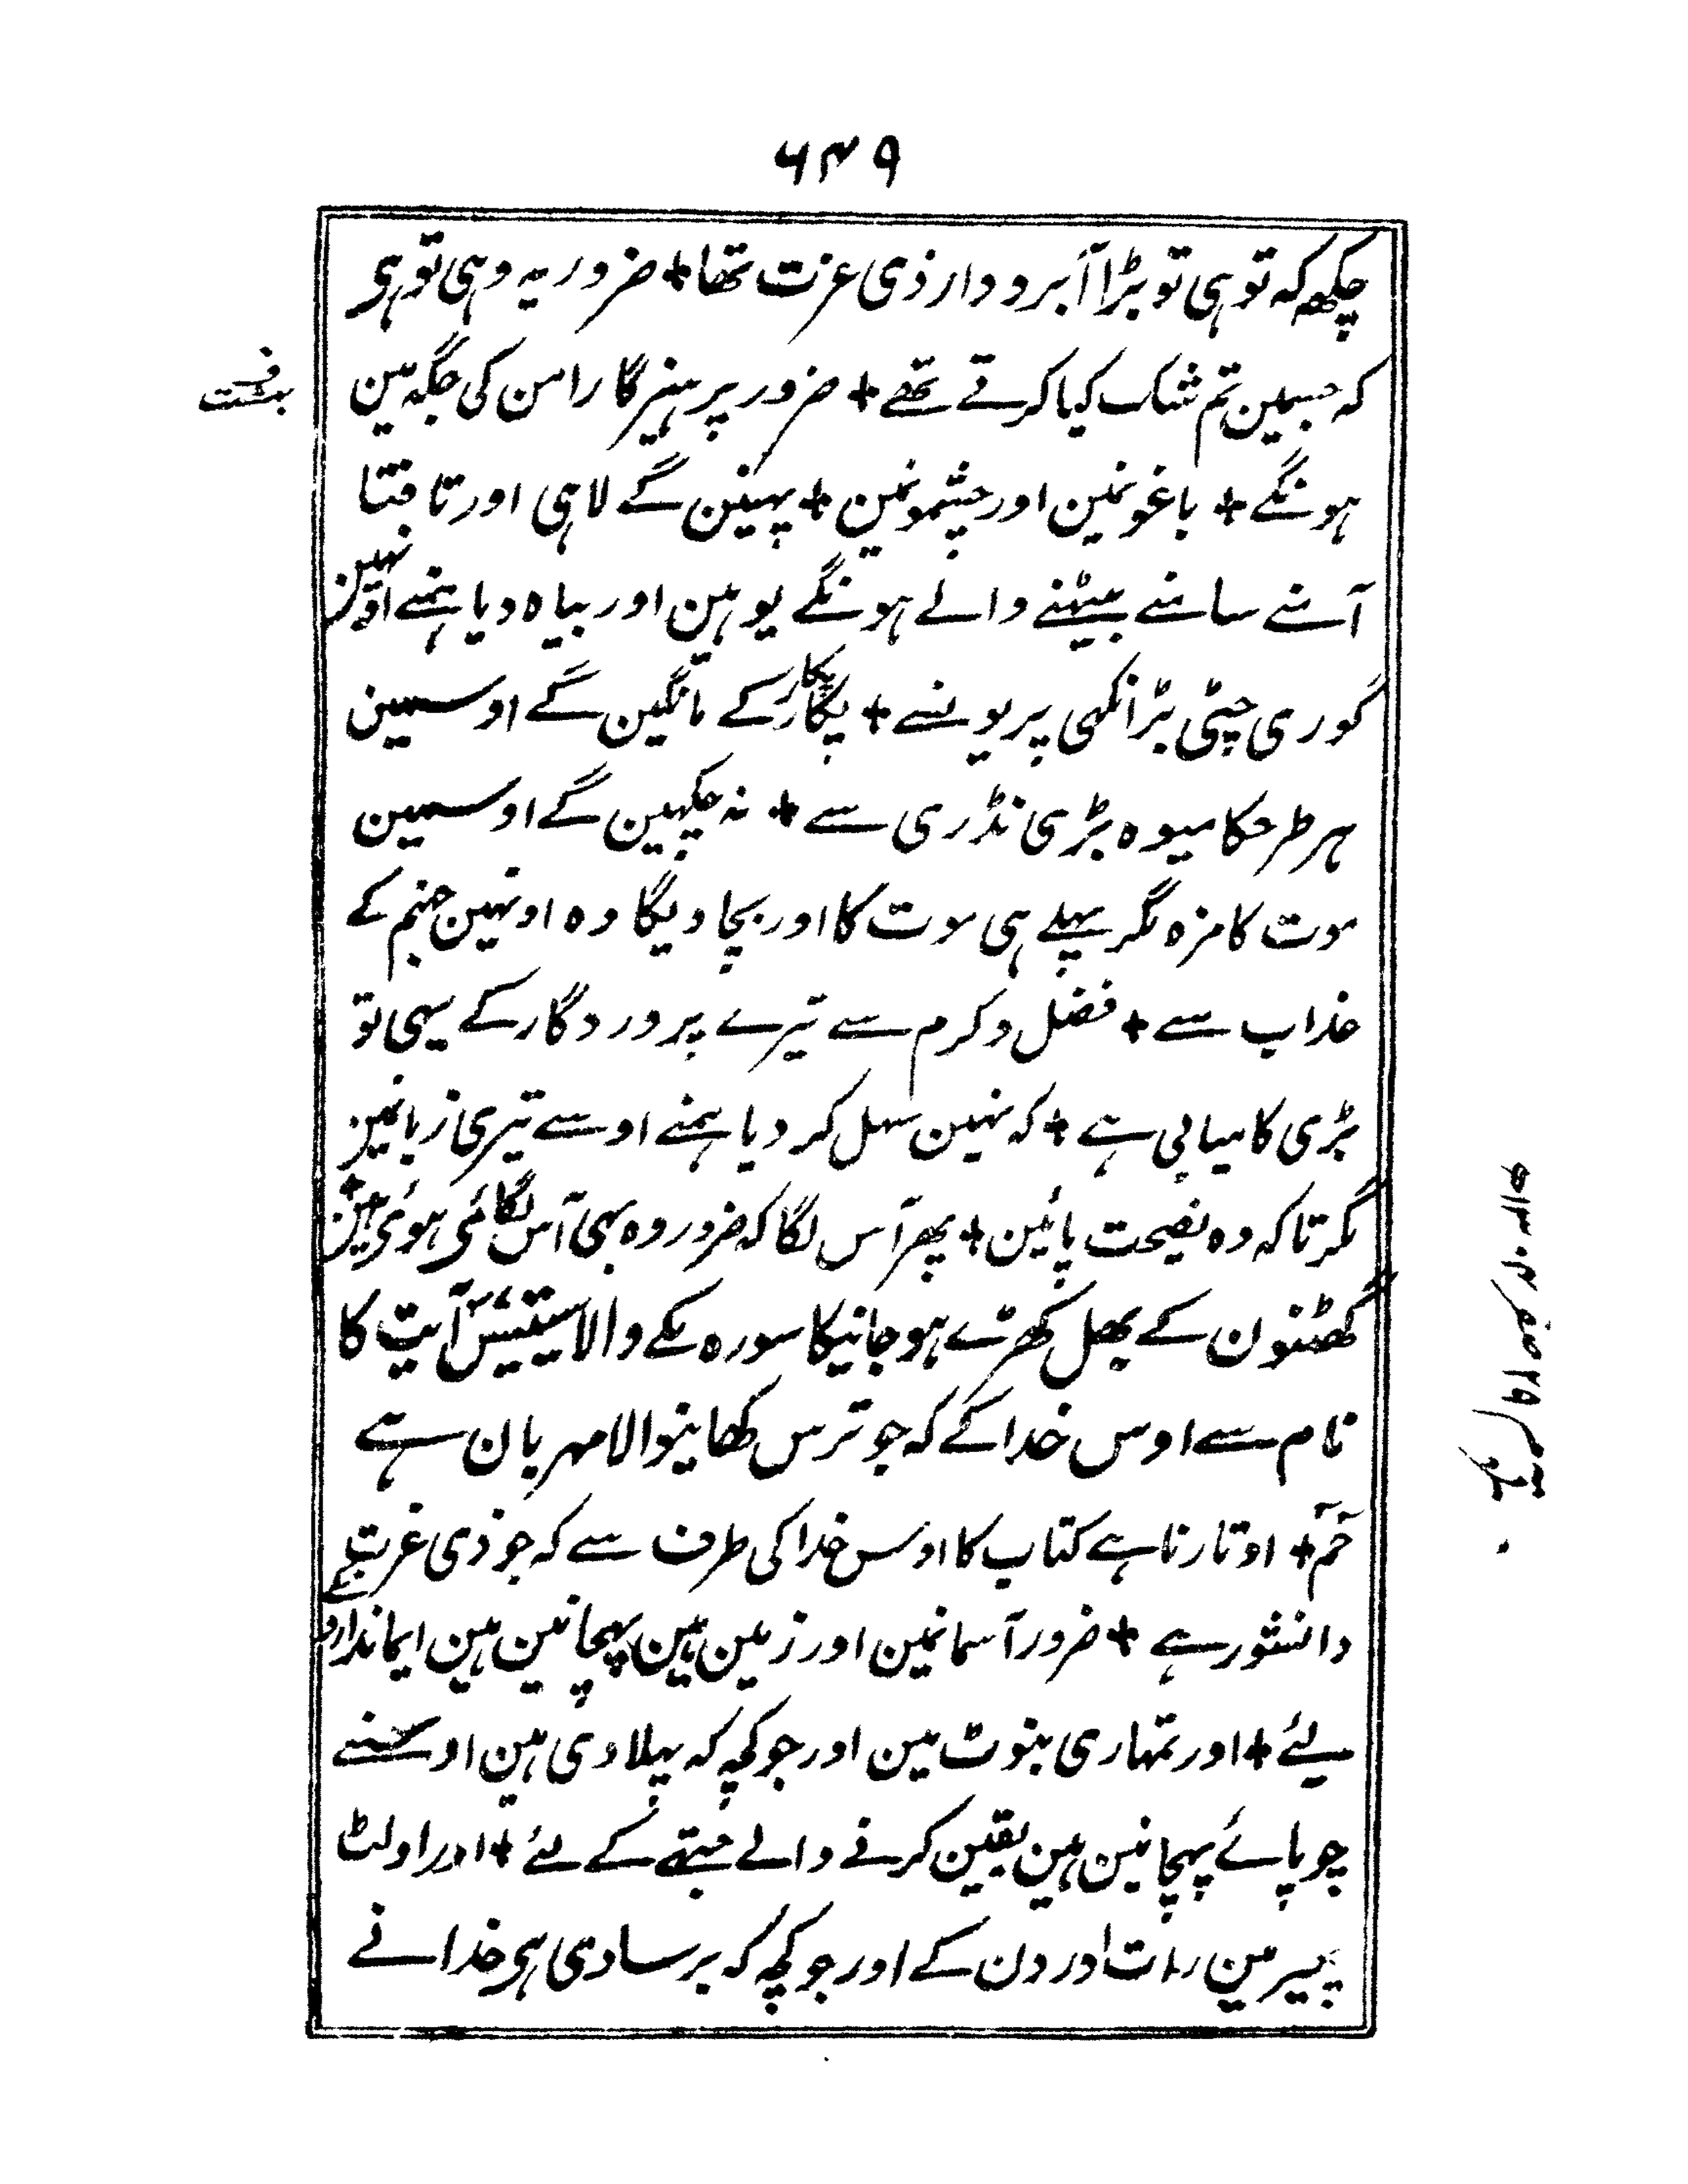 ۶۴۹
چکھ کہ تو ہی تو بڑا آبرو دار ذی عزت تھا + ضرور یہ وہی تو ہی
کہ جسمین تم شک کیا کرتے تھے + ضرور پرہیزگار امن کی جگہ مین
ف بہشت
ہونگے + باغونمین اور چشمونمین + پہنین گے لاہی اور تافتا
آمنے سامنے بیٹہنے والے ہونگے یوہین اور بیاہ دیا ہمنے اونہین
گوری چٹی بڑانکھی پریونسے + پکار پکار کے مانگین گے اوسمین
ہر طرحکا میوہ بڑی نڈری سے + نہ چکہین گے اوسمین
موت کا مزہ مگر پہلے ہی موت کا اور بچا دیگا وہ اونہین جہنم کے
عذاب سے + فضل و کرم سے تیرے پروردگار کے یہی تو
بڑی کامیابی ہے + کہ نہین سہل کر دیا ہمنے اوسے تیری زبانمین
مگر تاکہ وہ نصیحت پائین + پھر آس لگا کہ ضرور وہ بہی آس لگائی ہوئی ہین +
گھٹنون کے بھل کھڑے ہو جانیکا سورہ مکے والا سینتیس آیت کا
نام سے اوس خدا کے کہ جو ترس کھانیوالا مہربان ہے
حٰمٓ + اوتارنا ہے کتاب کا اوس خدا کی طرف سے کہ جو ذی عزت
دانشور ہے + ضرور آسمانمین اور زمین مین پہچانین ہین ایماندارو
لیئے + اور تمہاری بنوٹ مین اور جو کچہ کہ پہلا دی ہین اوسنے
چوپائے پہچانین ہین یقین کرنے والے جتھے کے لئے + اور اولٹ
پھیر مین رات اور دن کے اور جو کچہ کہ برسا دی ہی خدا نے